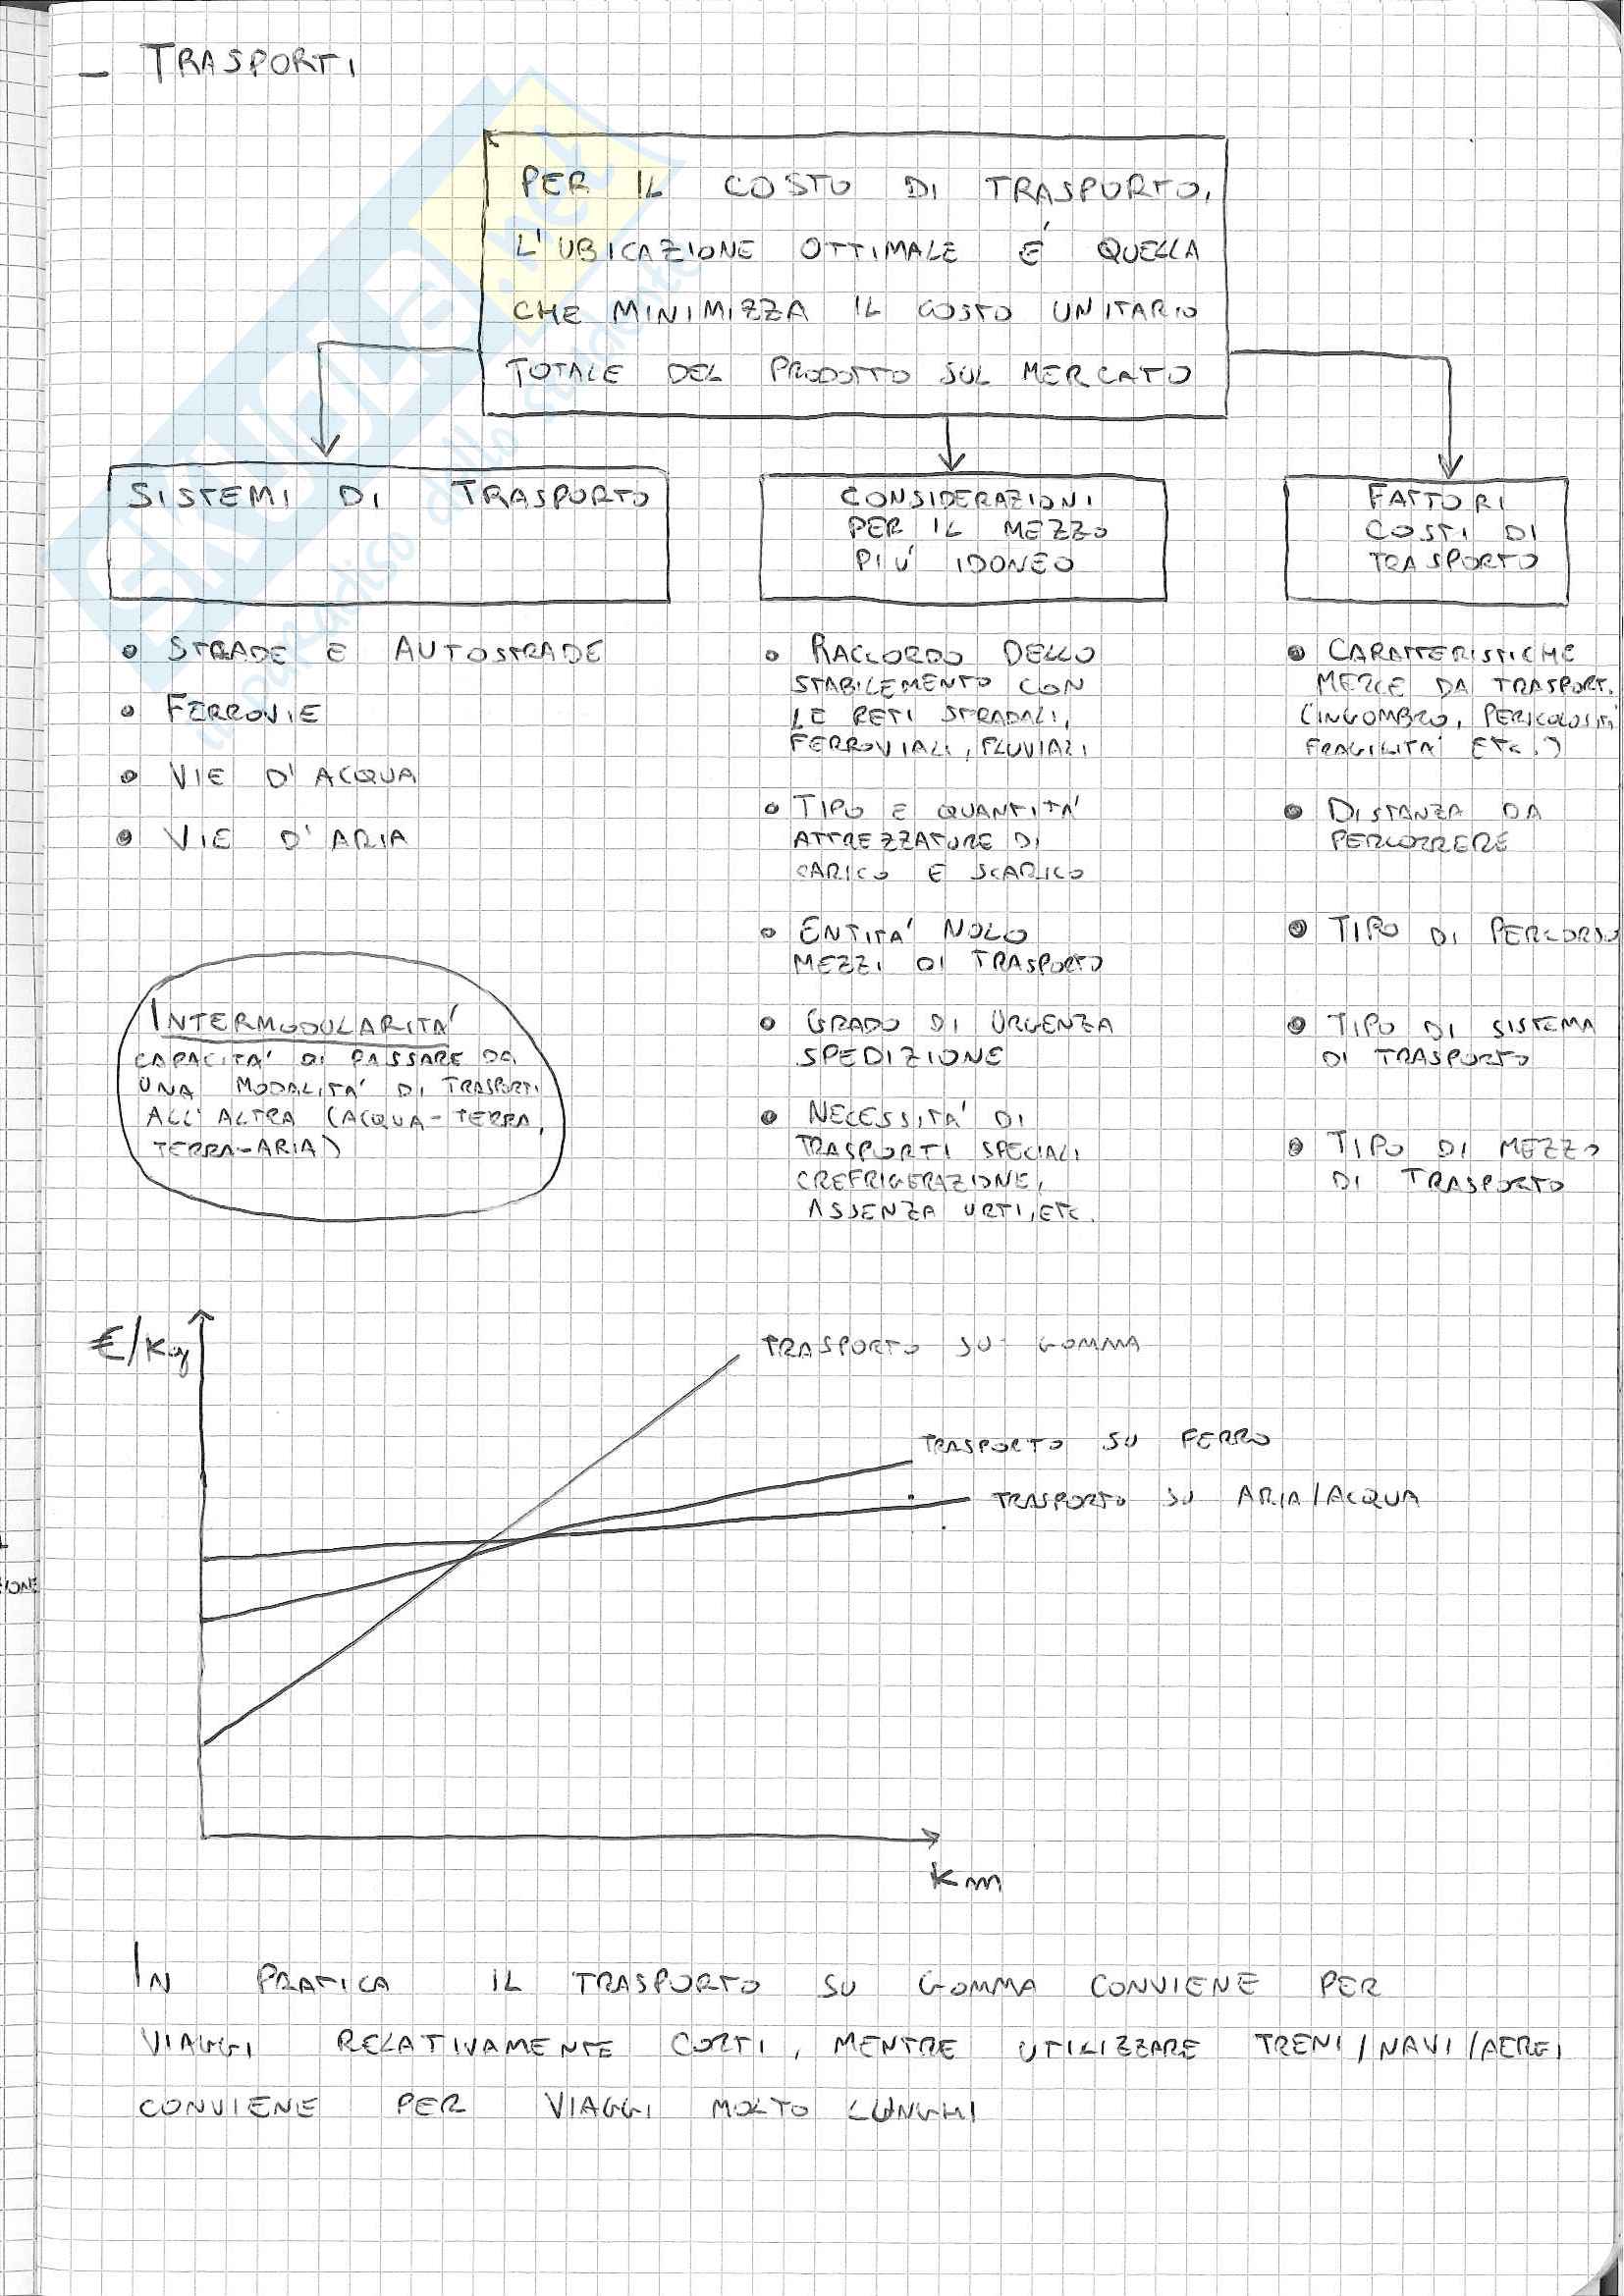 - TRASPORTI
PER IL COSTO DI TRASPORTO,
L'UBICAZIONE OTTIMALE E' QUELLA
CHE MINIMIZZA IL COSTO UNITARIO
TOTALE DEL PRODOTTO SUL MERCATO
SISTEMI DI TRASPORTO
• STRADE E AUTOSTRADE
• FERROVIE
• VIE D'ACQUA
• VIE D'ARIA
INTERMODULARITA'
CAPACITA' DI PASSARE DA
UNA MODALITA' DI TRASPORTI
ALL'ALTRA (ACQUA-TERRA,
TERRA-ARIA)
CONSIDERAZIONI
PER IL MEZZO
PIU' IDONEO
• RACCORDO DELLO
STABILEMENTO CON
LE RETI STRADALI,
FERROVIALI, FLUVIALI
• TIPO E QUANTITA'
ATTREZZATURE DI
CARICO E SCARICO
• ENTITA' NOLO
MEZZI DI TRASPORTO
• GRADO DI URGENZA
SPEDIZIONE
• NECESSITA' DI
TRASPORTI SPECIALI
(REFRIGERAZIONE,
ASSENZA URTI, ETC.
FATTORI
COSTI DI
TRASPORTO
• CARATTERISTICHE
MERCE DA TRASPORT.
(INGOMBRO, PERICOLOSITA'
FRAGILITA' ETC.)
• DISTANZA DA
PERCORRERE
• TIPO DI PERCORSO
• TIPO DI SISTEMA
DI TRASPORTO
• TIPO DI MEZZO
DI TRASPORTO
€/Kg
TRASPORTO SU GOMMA
TRASPORTO SU FERRO
TRASPORTO SU ARIA/ACQUA
Km
IN PRATICA IL TRASPORTO SU GOMMA CONVIENE PER
VIAGGI RELATIVAMENTE CORTI, MENTRE UTILIZZARE TRENI/NAVI/AEREI
CONVIENE PER VIAGGI MOLTO LUNGHI
SKUOLA.net
il paradiso dello studente